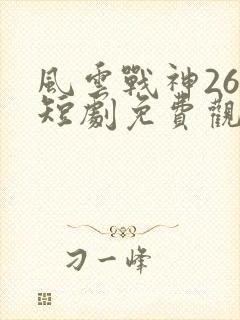 風雲戰神26
短劇免費觀
刁一峰